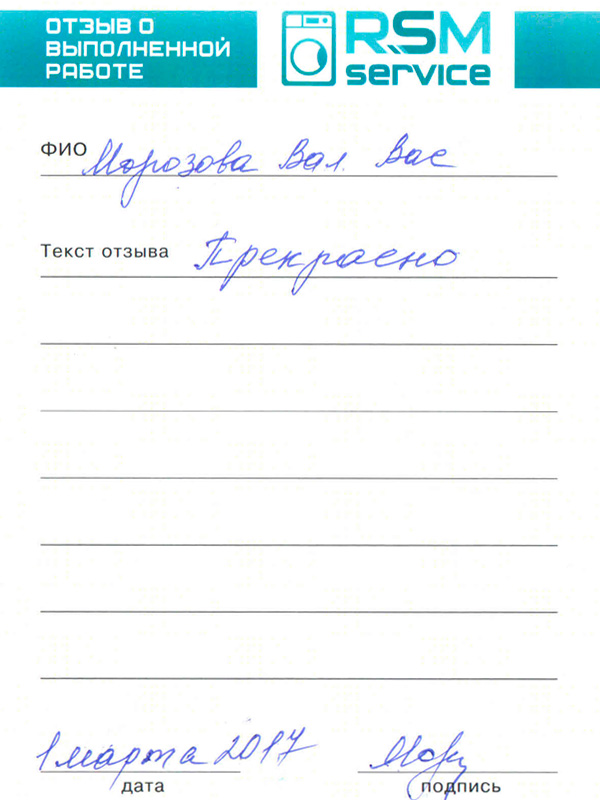 ОТЗЫВ О
ВЫПОЛНЕННОЙ
РАБОТЕ
RSM
service
ФИО Морозова Вал. Вас
Текст отзыва Прекрасно
1 марта 2017
дата
подпись